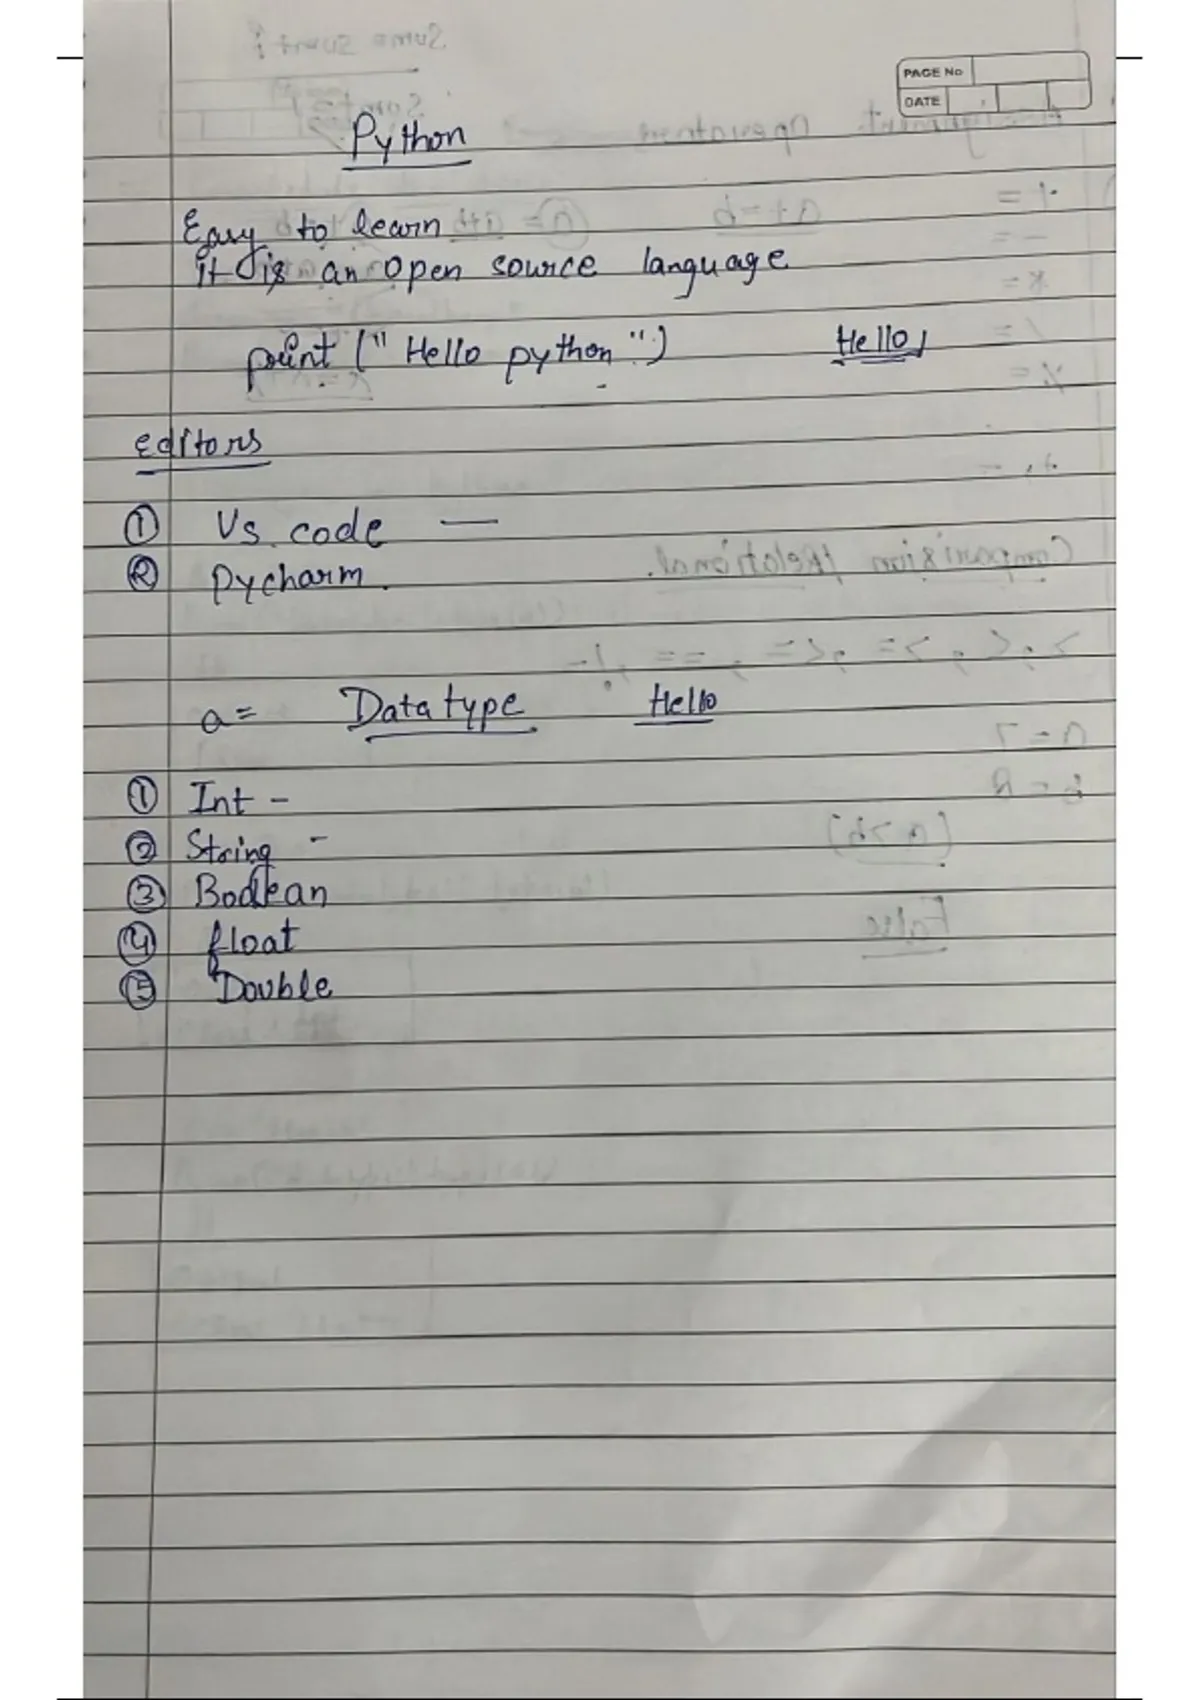 PAGE No
DATE
Python
Easy to learn
it is an open source language
print (" Hello python ") Hello
editors
① Vs. code —
② Pycharm.
a = Datatype Hello
① Int -
② String -
③ Boolean
④ float
⑤ Double